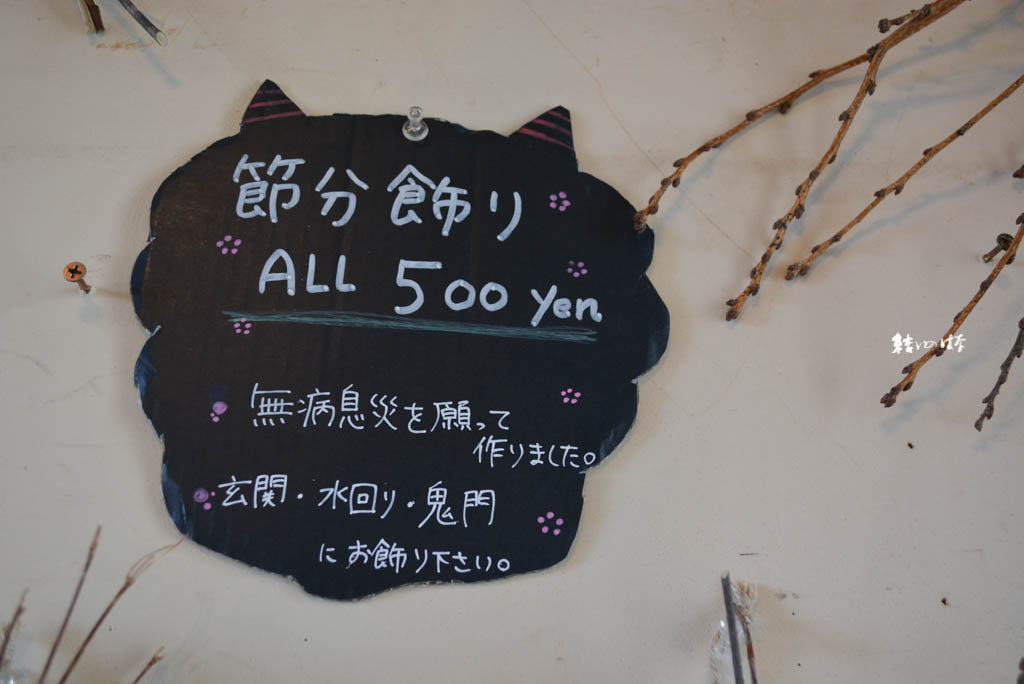 節分飾り
ALL 500 yen
無病息災を願って
作りました。
玄関・水回り・鬼門
にお飾り下さい。